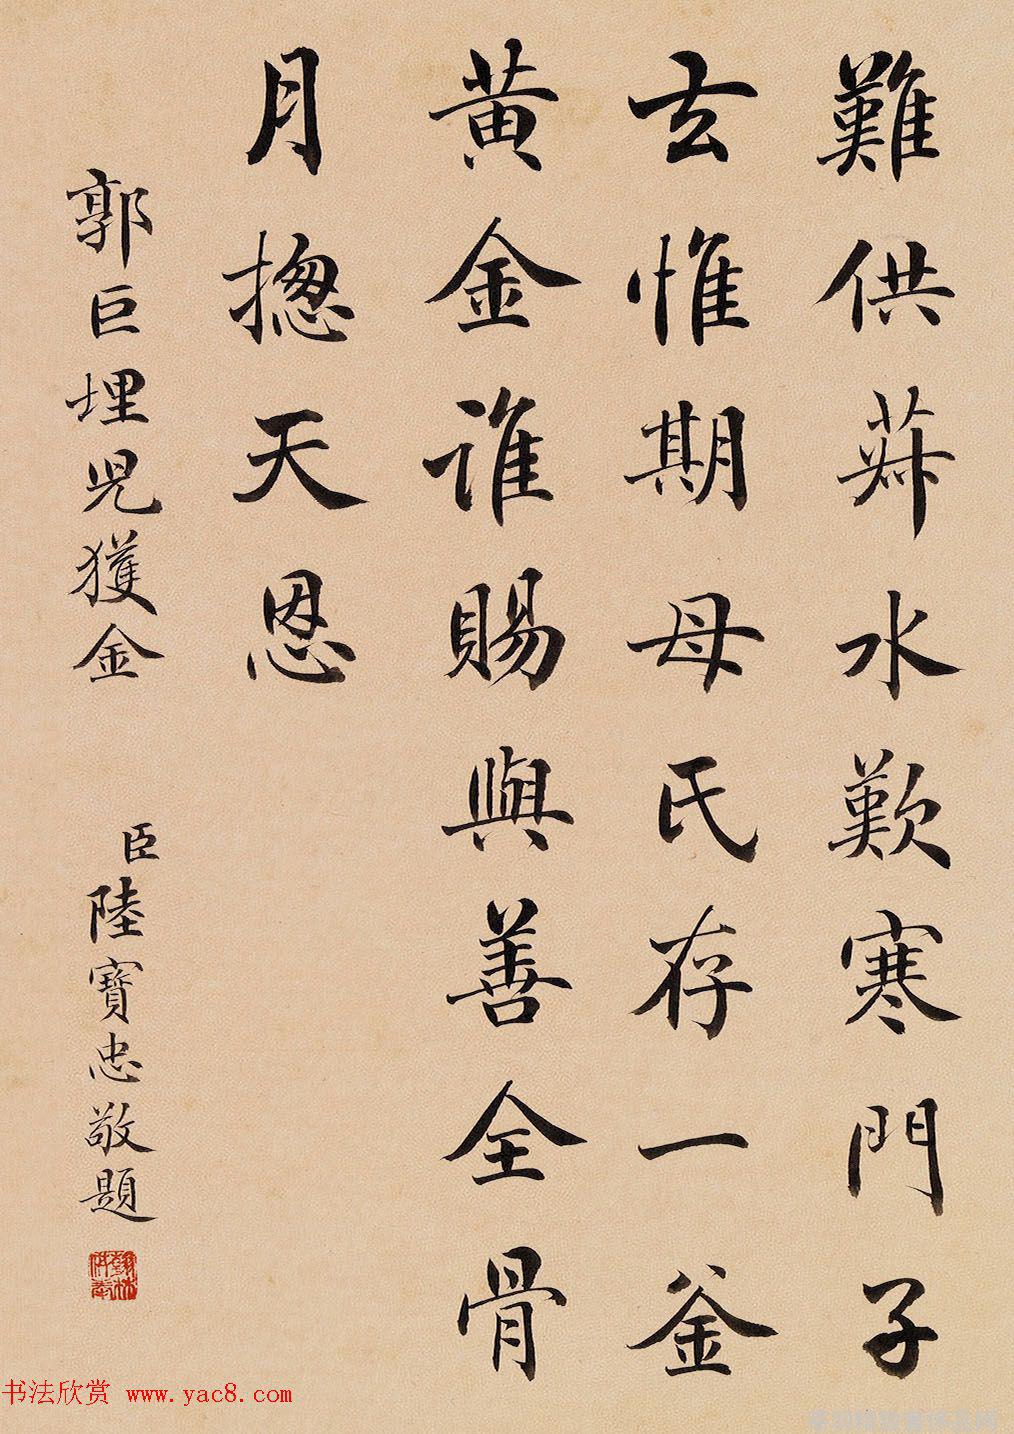 難供菽水歎寒門子
去惟期母氏存一釜
黃金誰賜與善全骨
月摠天恩
郭巨埋兒獲金
臣陸寶忠敬題
翰林供奉
书法欣赏 www.yac8.com